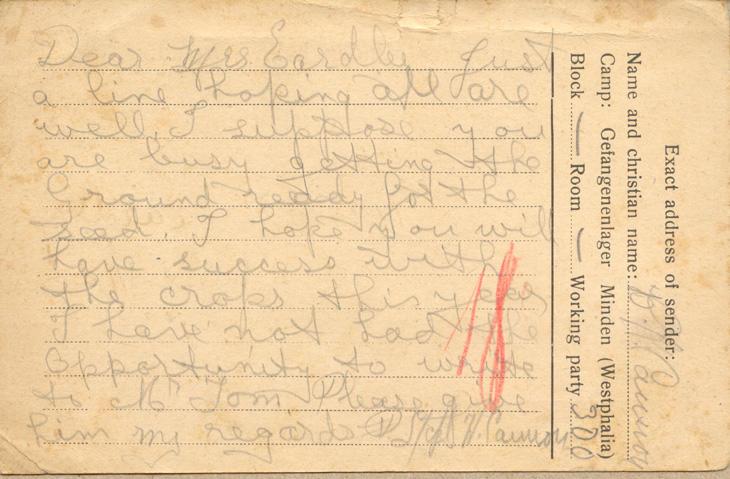 Dear Mrs Eardley Just
a line hoping all are
well. I suppose you
are busy getting the
Ground ready for the
seed. I hope you will
have success with
the crops this year
I have not had the
opportunity to write
to Mr Tom Please give
him my regards
Exact address of sender:
Name and christian name:
Camp: Gefangenenlager Minden (Westphalia)
Block — Room — Working party 300